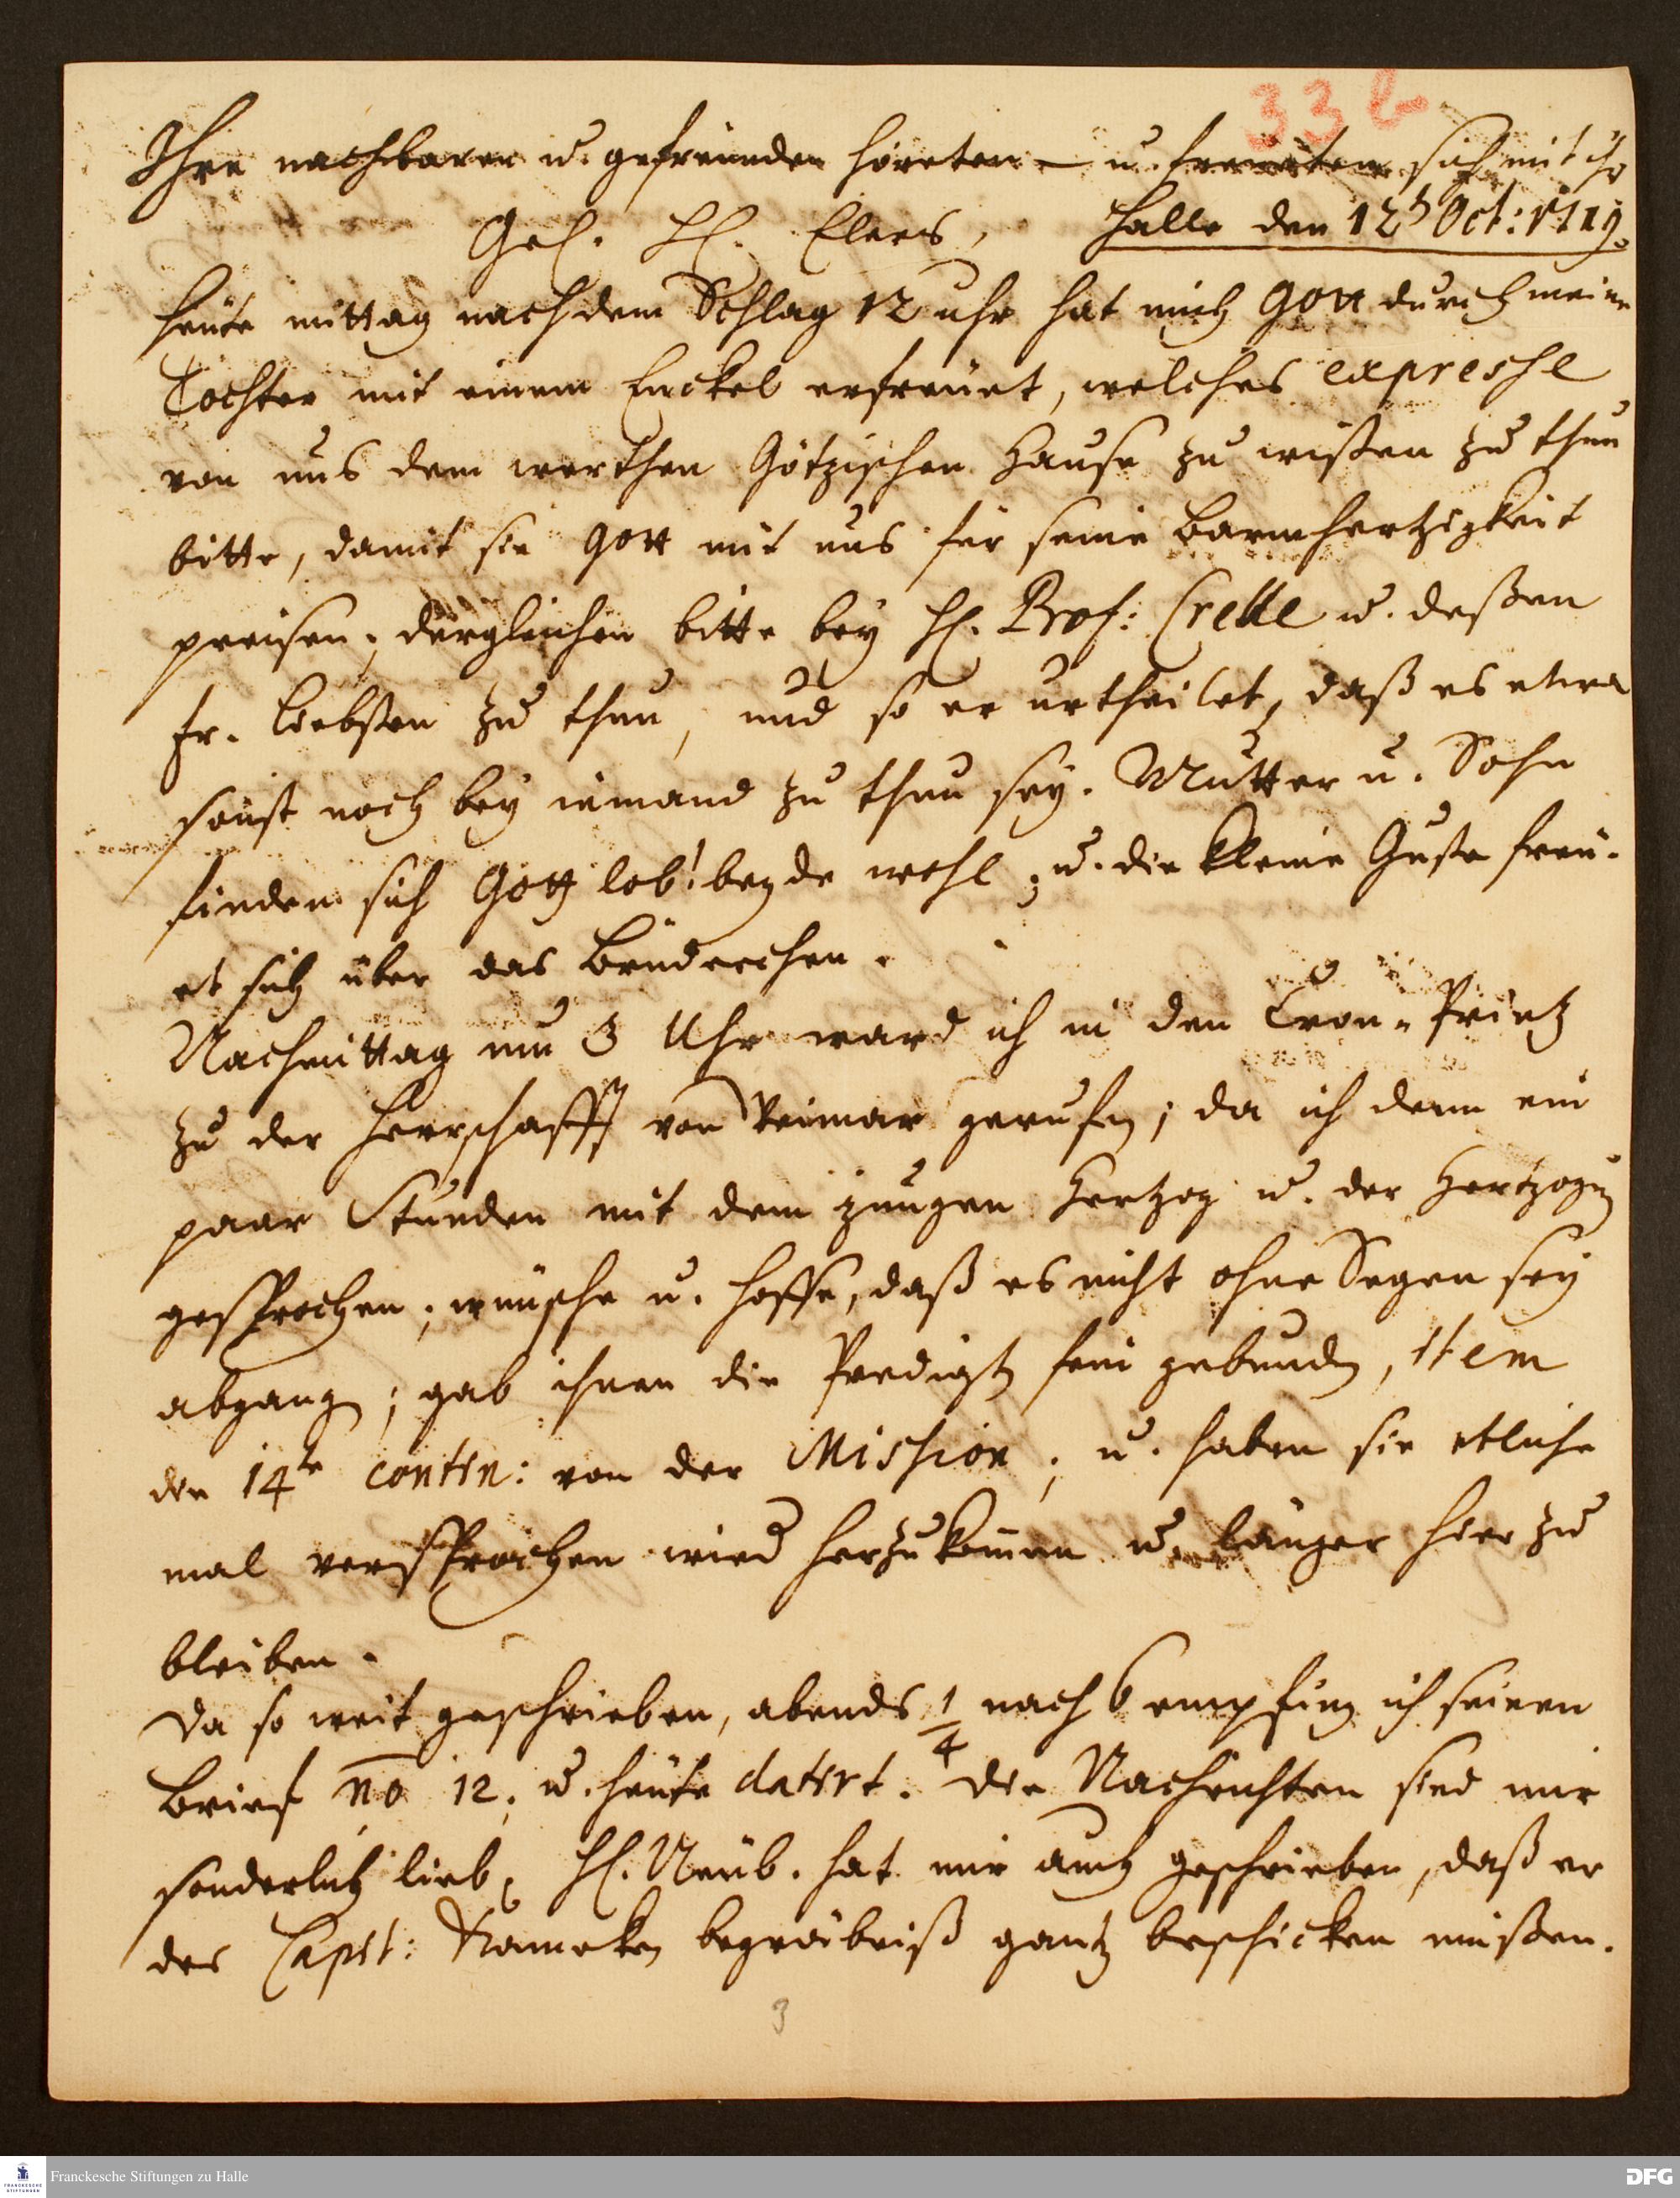 33 b
Ihre nachbaren u. gefreünden höreten — u. freueten sich mit ihr
Gel. H. Elers, Halle den 12t Oct: 1719.
Heüte mittag nach dem Schlag 12 uhr hat mich Gott durch meine
Tochter mit einem Enckel erfreüet, welches expresse
von uns dem werthen Götzischen Hause zu wißen zu thun
bitte, damit sie Gott mit uns für seine Barmhertzigkeit
preisen; dergleichen bitte bey H. Prof: Crelle u. deßen
Fr. Liebsten zu thun, und so er urtheilet, daß es etwa
sonst noch bey iemand zu thun sey. Mutter u. Sohn
finden sich Gott lob! beyde wohl; u. die kleine Guste freü-
et sich über das Brüderchen.
Nachmittag um 3 Uhr ward ich in den Cron-Printz
zu der Herrschafft von Weimar geruffen; da ich denn ein
paar Stunden mit dem jungen Hertzog u. der Hertzogin
gesprochen; wünsche u. hoffe, daß es nicht ohne Segen sey
abgangen; gab ihnen die Predigten fein gebunden, item
die 14te contin: von der Mission; u. haben sie etliche
mal versprochen wied herzukommen u. länger hier zu
bleiben.
Da so weit geschrieben, abends 1/4 nach 6 empfing ich seinen
Brief no 12. u. heüte datirt. Die Nachrichten sind mir
sonderlich lieb, H. Neub. hat mir auch geschrieben, daß er
des Capit: begräbniß gantz beschicken müßen.
3
Franckesche Stiftungen zu Halle
DFG